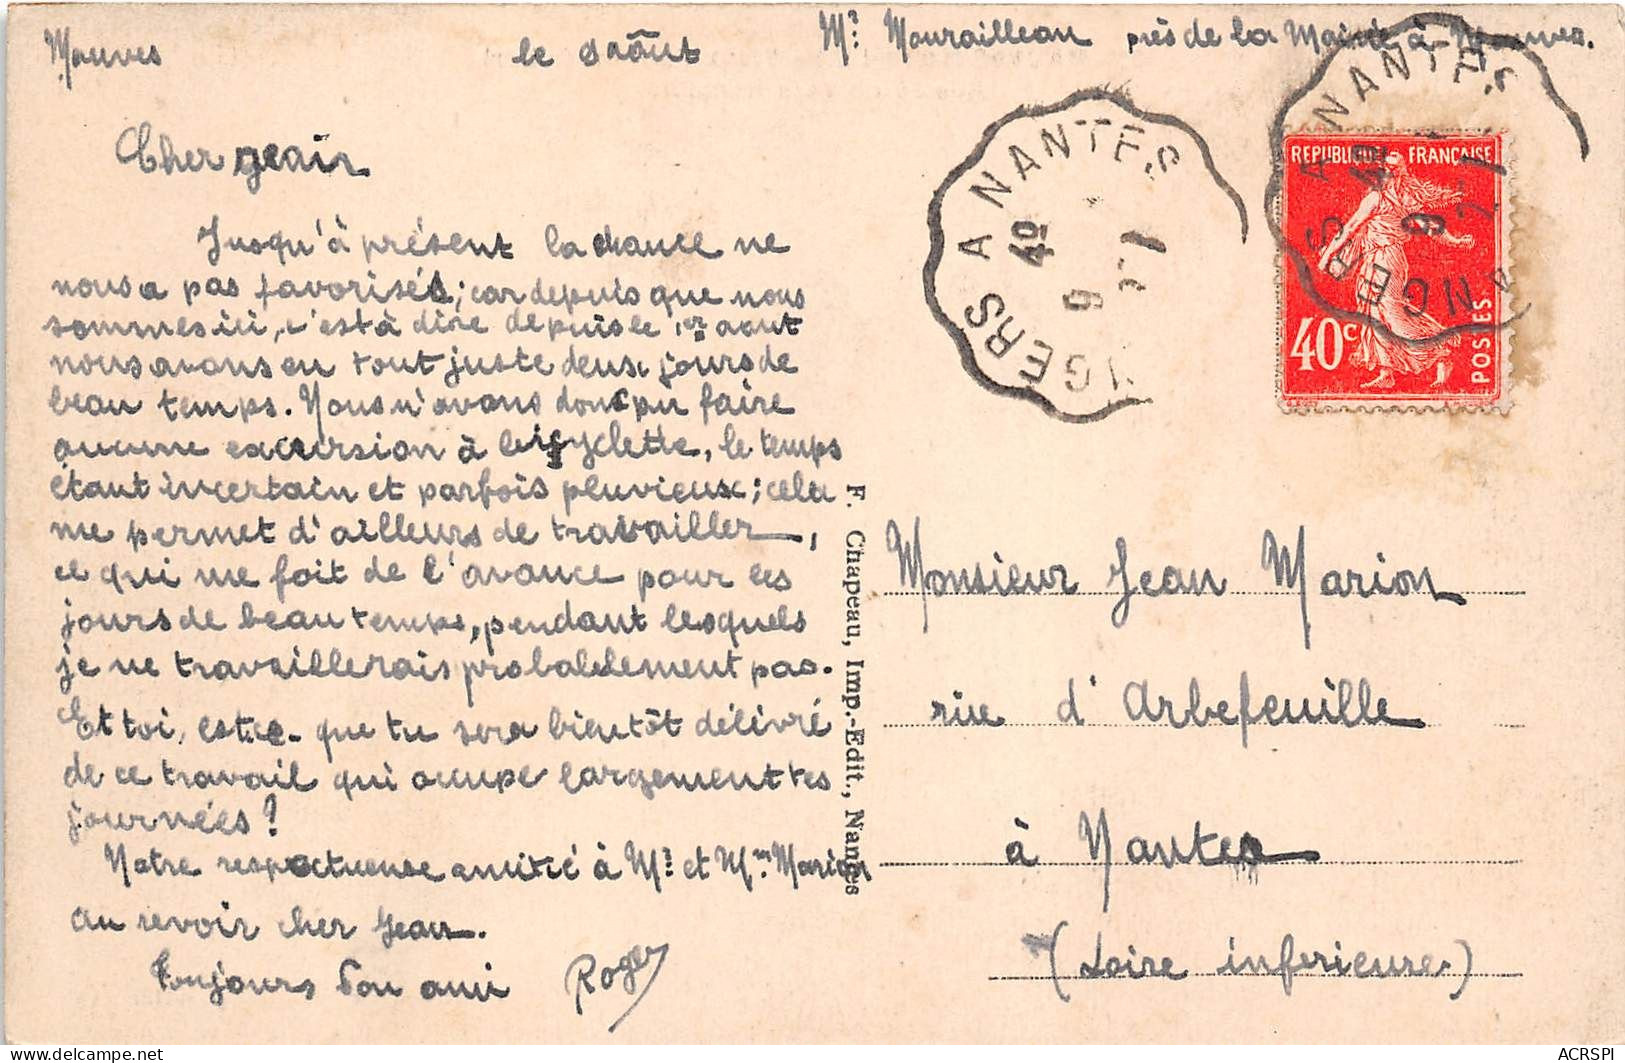 Mauves le août Mr Mourailleau près de la Mairie à Mauves.
Cher Jean
Jusqu'à présent la chance ne
nous a pas favorisés; car depuis que nous
sommes ici, c'est à dire depuis le 1er aout
nous avons eu tout juste deux jours de
beau temps. Nous n'avons donc pu faire
aucune excursion à bicyclette, le temps
étant incertain et parfois pluvieux; cela
me permet d'ailleurs de travailler,
ce qui me fait de l'avance pour les
jours de beau temps, pendant lesquels
je ne travaillerais probablement pas.
Et toi, est-ce que tu sera bientôt délivré
de ce travail qui occupe largement tes
journées?
Notre respectueuse amitié à Mr et Mme Marion
au revoir cher Jean.
Toujours ton ami Roger
F. Chapeau, Imp.-Edit., Nantes
ANGERS A NANTES
4º
9
ANGERS A NANTES
REPUBLIQUE FRANÇAISE
40c
POSTES
Monsieur Jean Marion
rue d'Arbefeuille
à Nantes
(Loire inferieure)
ACRSPI